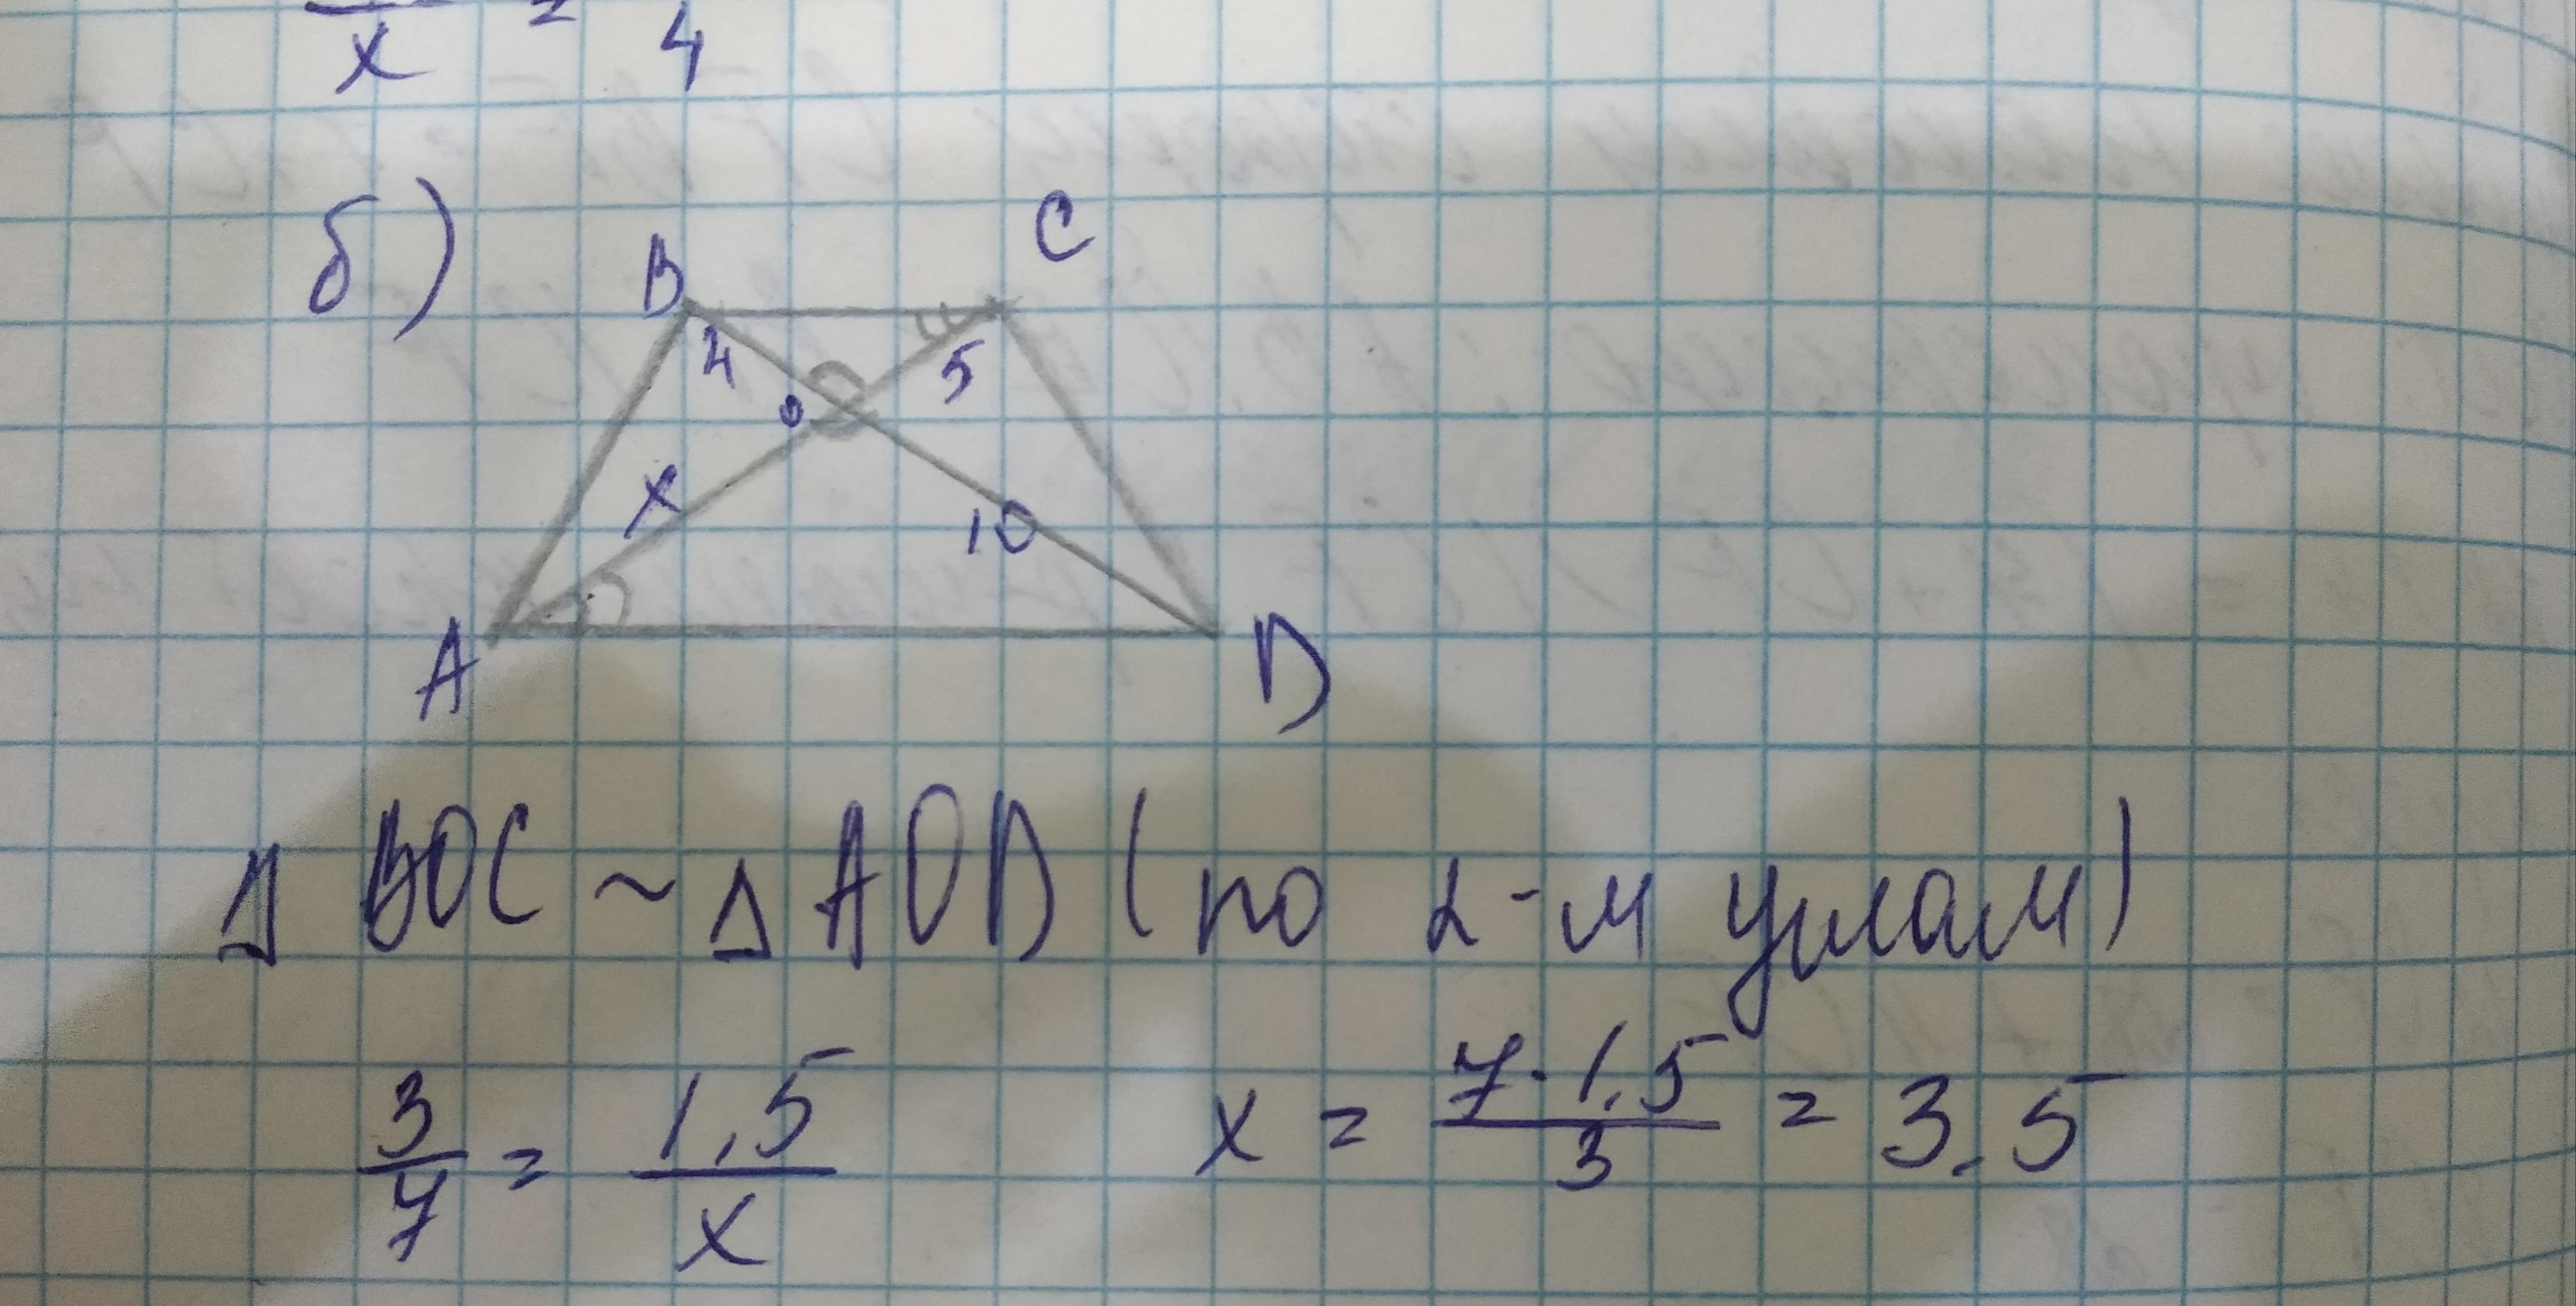 x = 4
б)
B C
4 5
O
x 10
A D
Δ BOC ~ Δ AOD (по 2-м углам)
3/7 = 1,5/x x = 7·1,5/3 = 3.5